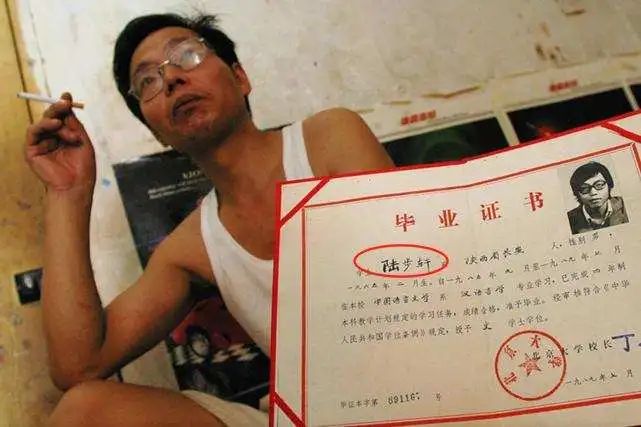 毕业证书
学生 陆步轩 陕西省长安 人,性别 男,
年 二 月生,自一九八五年 九 月至一九八九年 七 月
在本校 中国语言文学 系 汉语言学 专业学习,已完成 四 年制
本科教学计划规定的学习任务,成绩合格,准予毕业。经审核符合《中华
人民共和国学位条例》规定,授予 文 学士学位。
北京大学
北京大学校长 丁
一九八九年七月
毕证本字第 89116 号